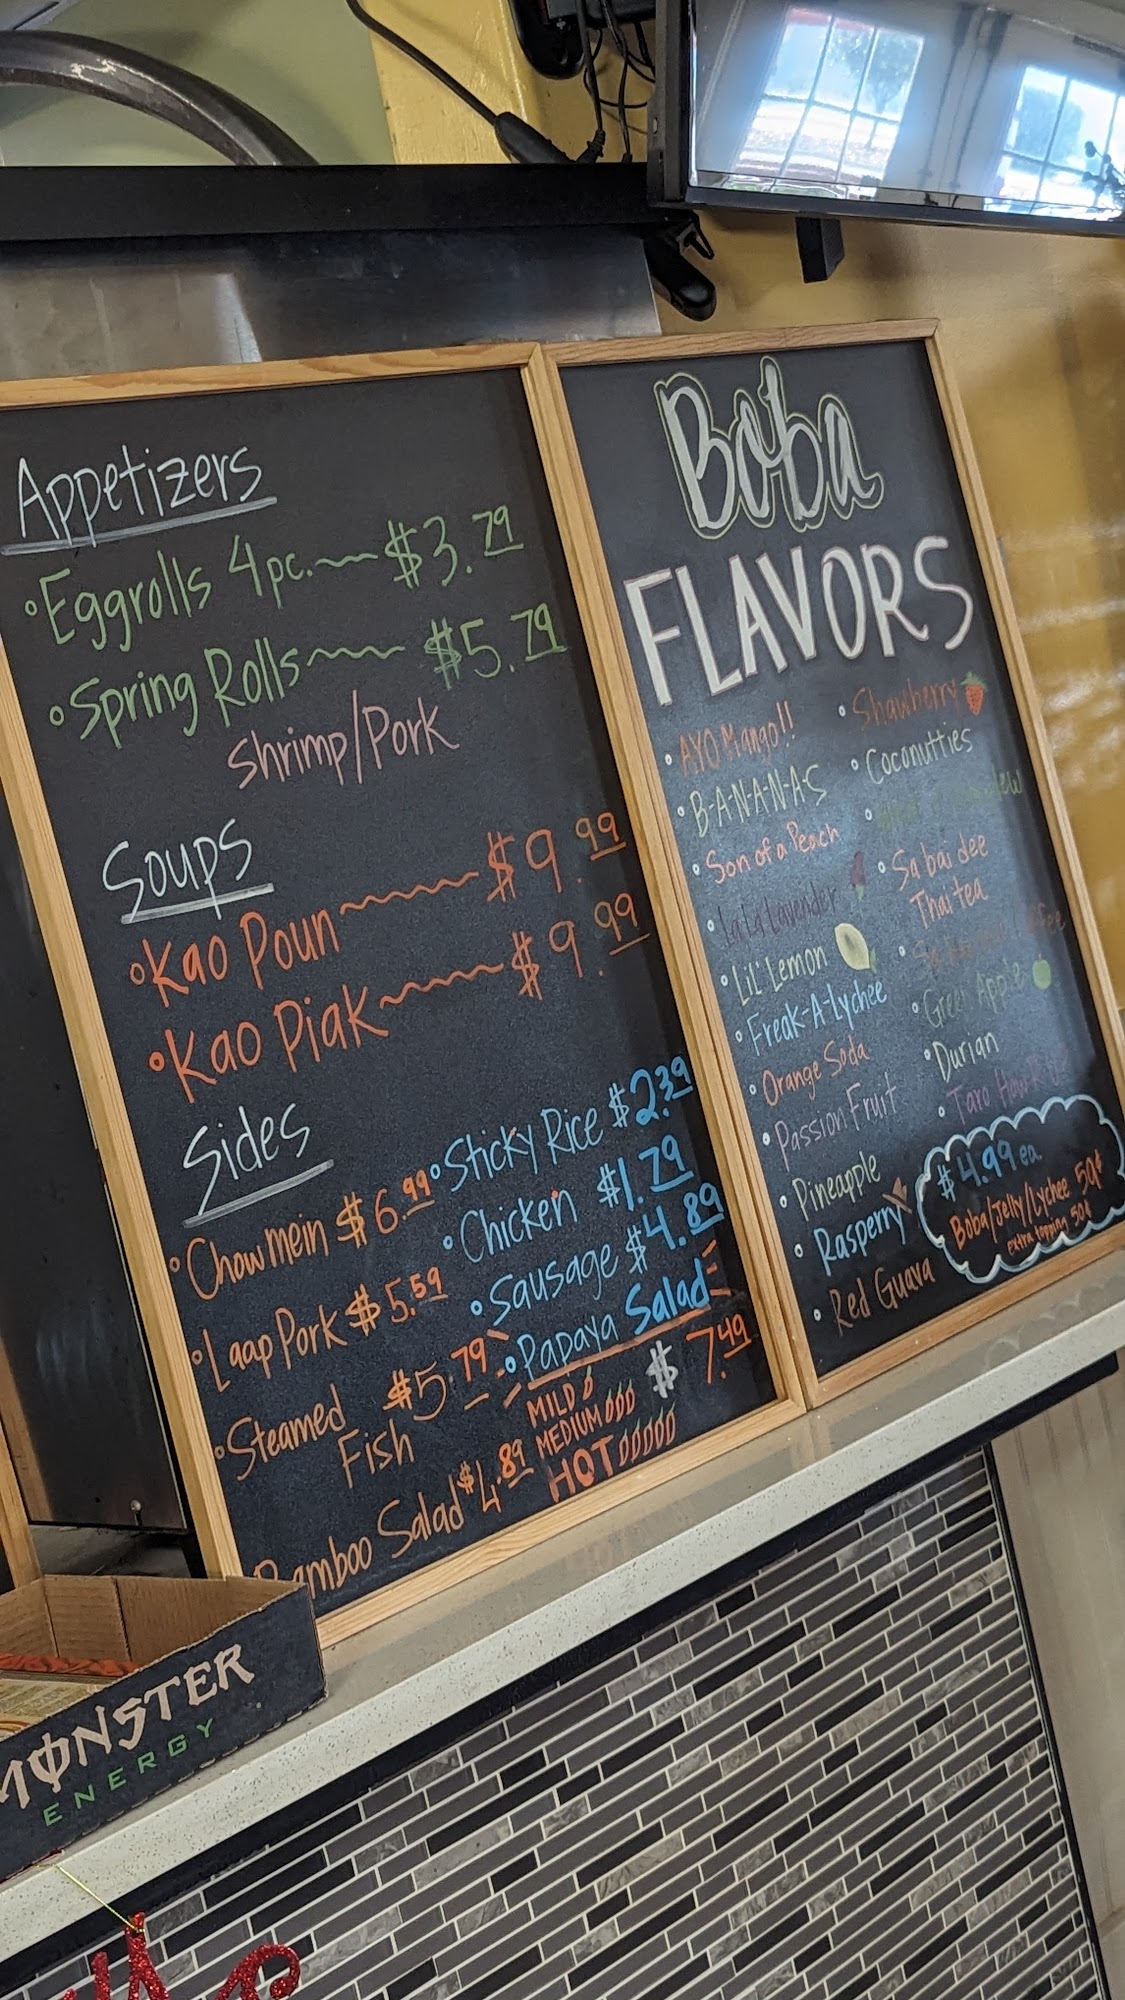 Appetizers
• Eggrolls 4pc. $3.79
• Spring Rolls $5.79
Shrimp/Pork
Soups
• Kao Poun $9.99
• Kao Piak $9.99
Sides
• Chow mein $6.99
• Laap Pork $5.59
• Steamed Fish $5.79
Bamboo Salad $4.89
• Sticky Rice $2.39
• Chicken $1.79
• Sausage $4.89
• Papaya Salad
MILD
MEDIUM
HOT
$7.49
Boba
FLAVORS
• AYO Mango!!
• B-A-N-A-N-A-S
• Son of a Peach
• LaLa Lavender
• Lil' Lemon
• Freak-A-Lychee
• Orange Soda
• Passion Fruit
• Pineapple
• Rasperry
• Red Guava
• Strawberry
• Coconutties
• Sabaidee
Thai tea
• Green Apple
• Durian
• Taro
$4.99 ea.
Boba/Jelly/Lychee 50¢
extra topping 50¢
MONSTER
ENERGY